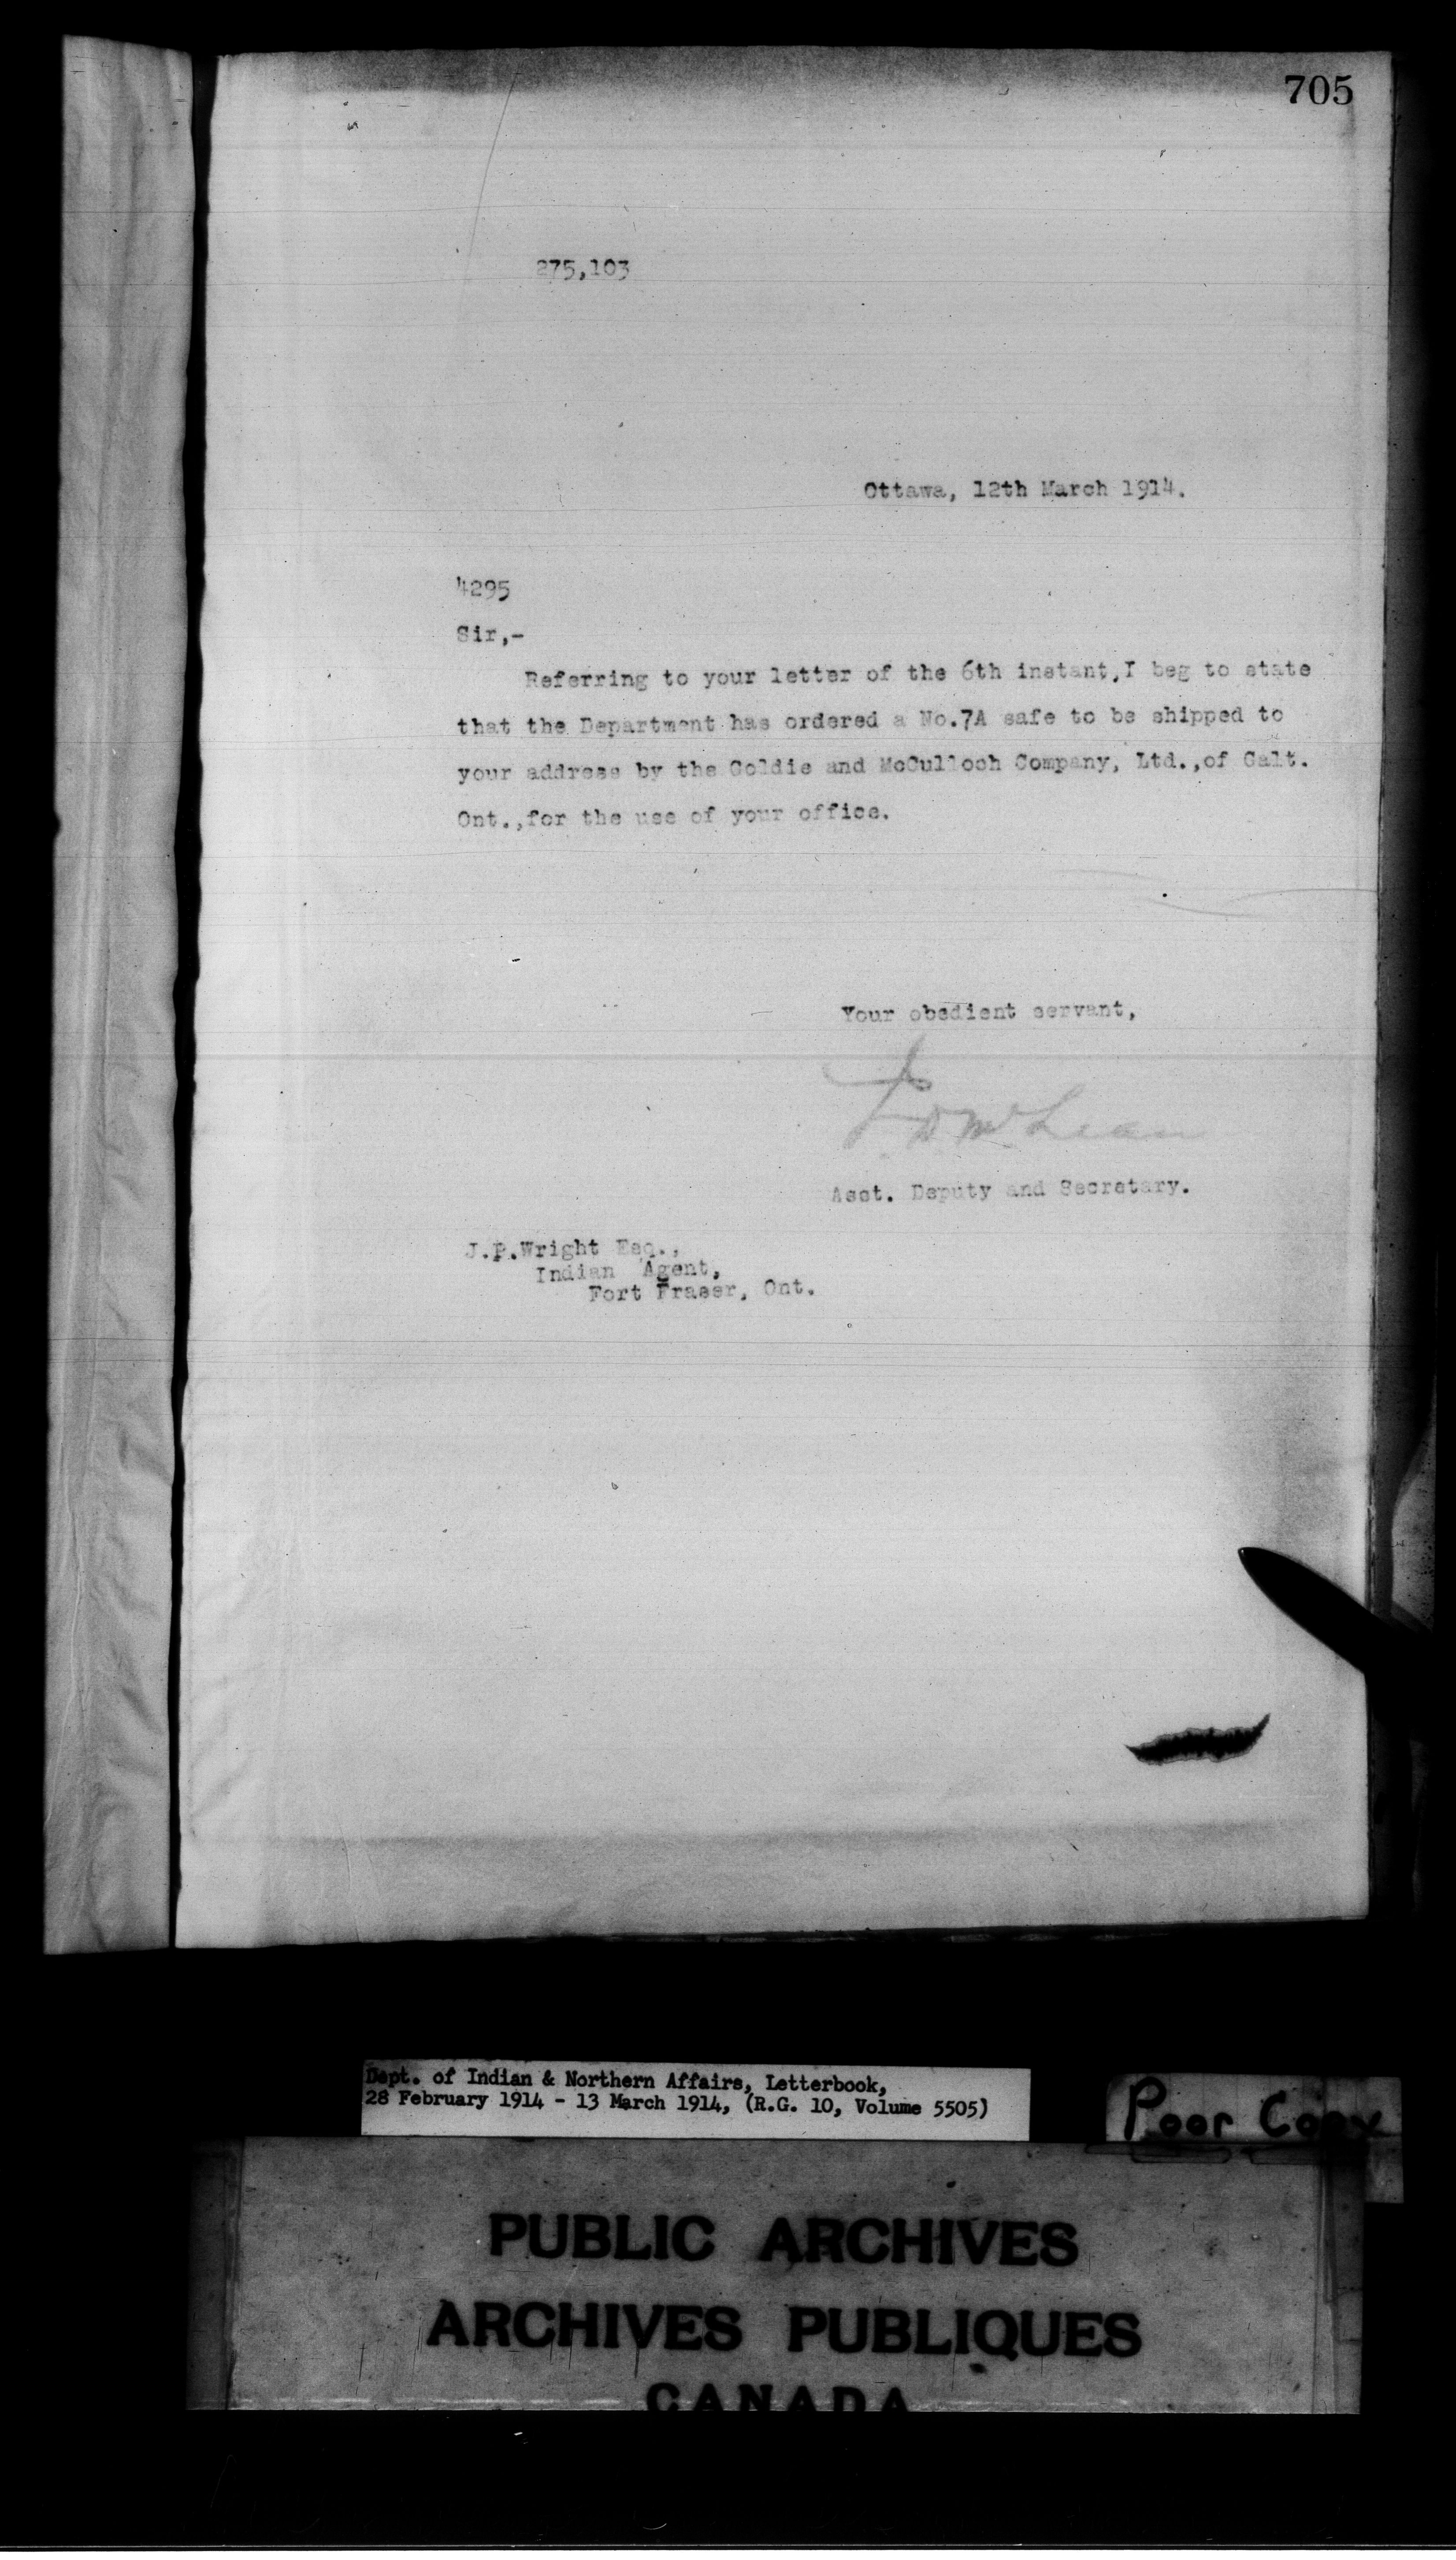 705
275,103
Ottawa, 12th March 1914.
4295
Sir,-
Referring to your letter of the 6th instant,I beg to state
that the Department has ordered a No.7A safe to be shipped to
your address by the Goldie and McCulloch Company, Ltd.,of Galt.
Ont.,for the use of your office.
Your obedient servant,
J D McLean
Asst. Deputy and Secretary.
J.P.Wright Esq.,
Indian Agent,
Fort Fraser, Ont.
Dept. of Indian & Northern Affairs, Letterbook,
28 February 1914 - 13 March 1914, (R.G. 10, Volume 5505)
Poor Copy
PUBLIC ARCHIVES
ARCHIVES PUBLIQUES
CANADA